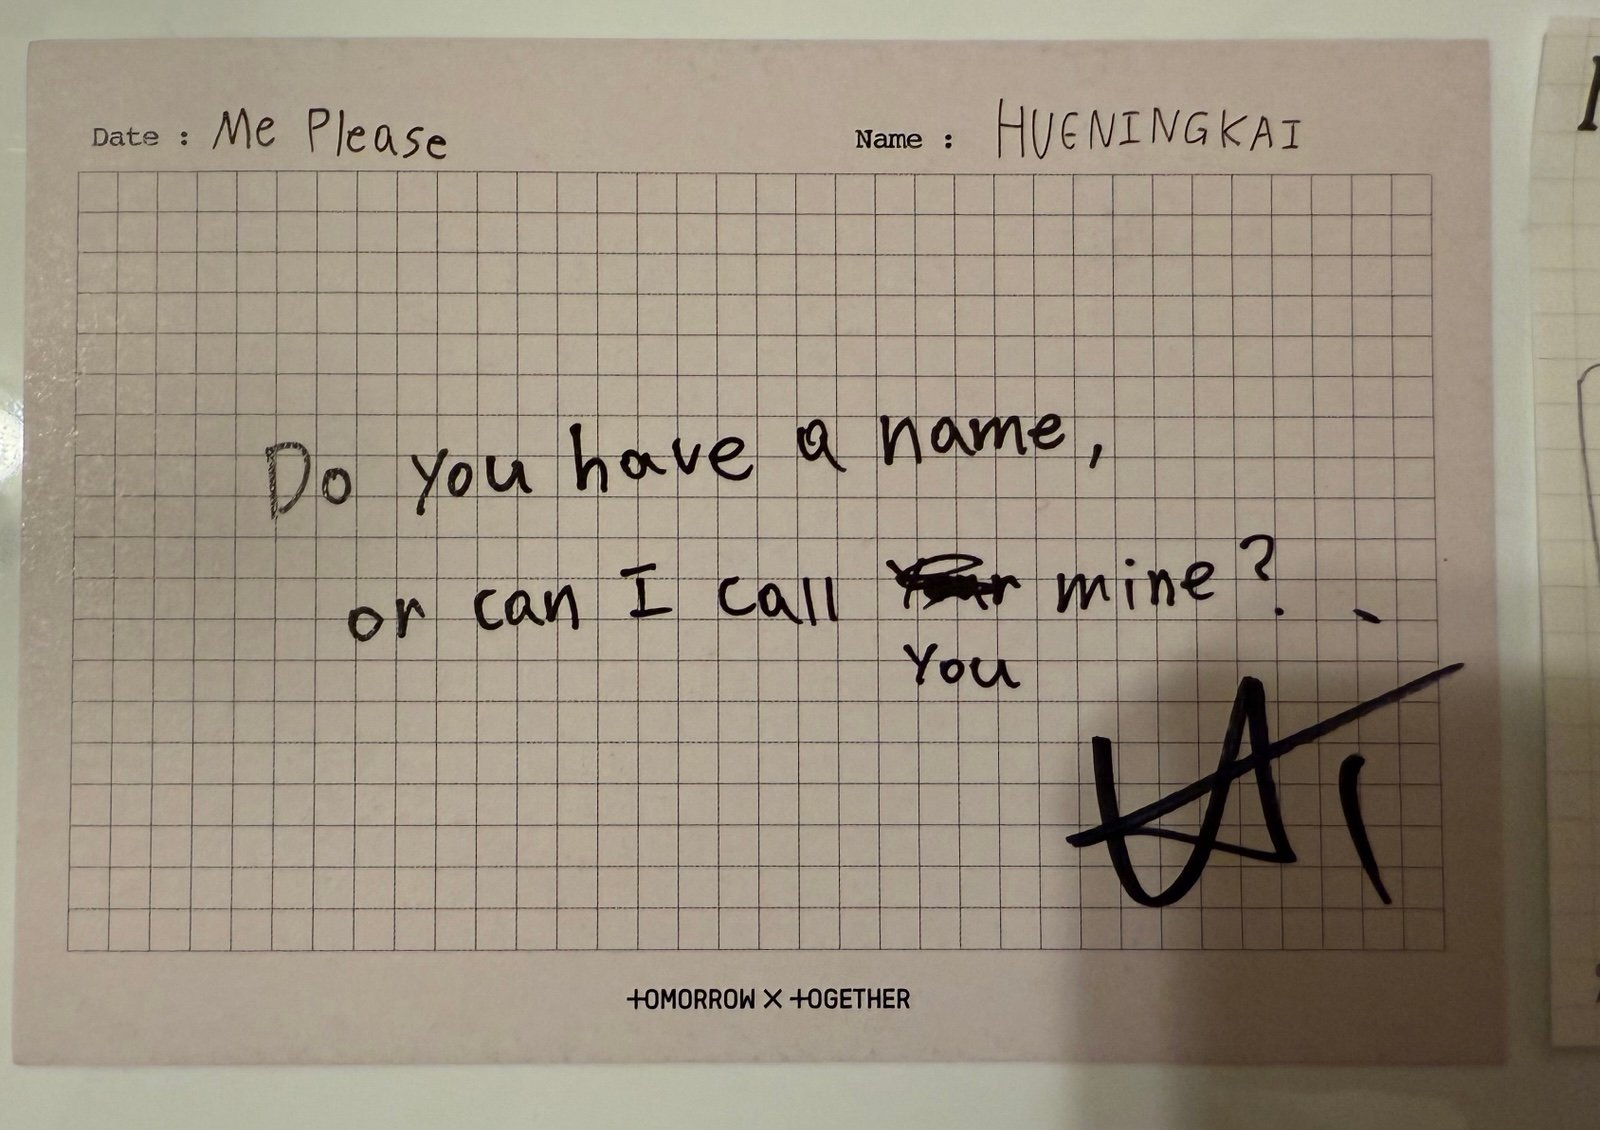 Date : Me Please
Name : HUENINGKAI
Do you have a name,
or can I call mine?
You
KAI
TOMORROW X TOGETHER